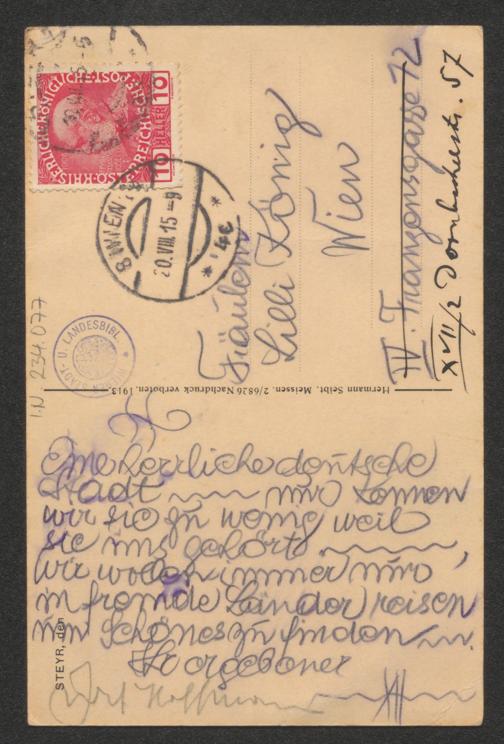 KAISERLICHE KÖNIGLICHE ÖSTERREICHISCHE POST
10 HELLER 10
8 WIEN
20.VIII.15-9
* 4c *
Fräulein
Lilli König
Wien
IV. Franzensgasse 12
XVII/2 Dornbacherstr. 57
Hermann Seibt, Meissen. 2/6826 Nachdruck verboten. 1913.
STADT- U. LANDESBIBL.
WIEN
I.N. 234.077
Eine herrliche deutsche
Stadt mir kennen
wir sie zu wenig weil
sie uns gehört ,
wir wollen immer nur
in fremde Länder reisen
um Schönes zu finden
Ihr ergebener
Hoffmann
STEYR, den